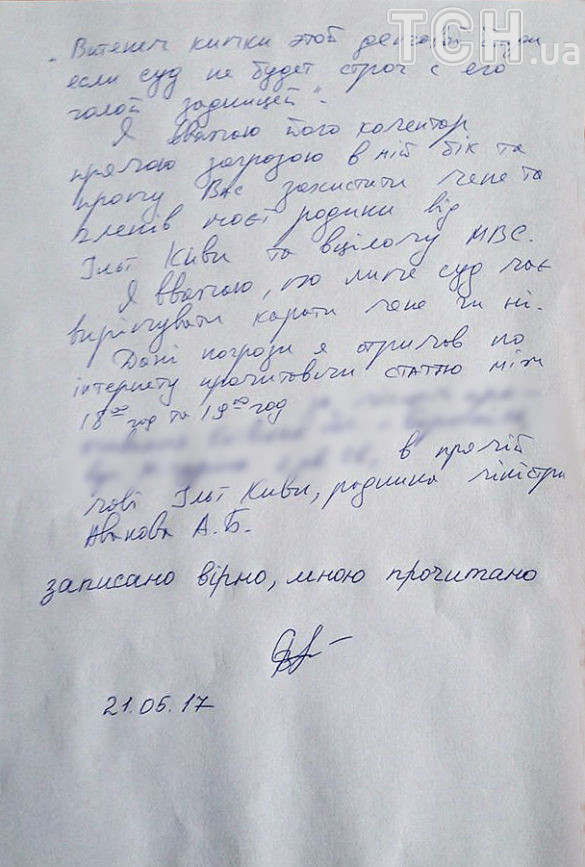 ТСН.ua
если суд не будет строч с его
голой задницей".
Я вважаю його коментар
прямою загрозою в мій бік та
прошу Вас захистити мене та
членів моєї родини від
Іллі Киви та вцілому МВС.
Я вважаю, що лише суд має
вирішувати карати мене чи ні.
Дані погрози я отримав по
інтернету прочитавши статтю між
18⁰⁰ год та 19⁰⁰ год
в прямій
мові Іллі Киви, радника міністра
Авакова А.Б.
записано вірно, мною прочитано
21.05.17